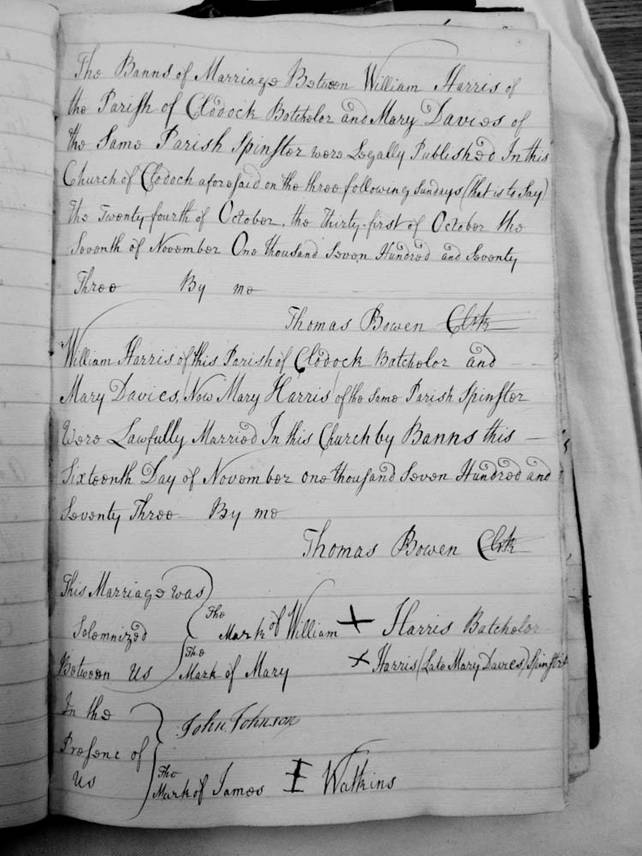 The Banns of Marriage Between William Harris of
the Parish of Clodock Batchelor and Mary Davies of
the Same Parish Spinster were Legally Published In this
Church of Clodoch aforesaid on the three following Sundays (that is to Say)
the Twenty fourth of October, the Thirty-first of October the
Seventh of November One thousand Seven Hundred and Seventy
Three By me
Thomas Bowen Clrk
William Harris of this Parish of Clodock Batchelor and
Mary Davies, (Now Mary Harris) of the same Parish Spinster
Were Lawfully Married In this Church by Banns this
Sixteenth Day of November one thousand Seven Hundred and
Seventy Three By me
Thomas Bowen Clrk
This Marriage was
Solemnized
Between Us
The Mark of William + Harris Batchelor
The Mark of Mary × Harris (Late Mary Davies) Spinster
In the
Presence of
Us
John Johnson
The Mark of James I Watkins